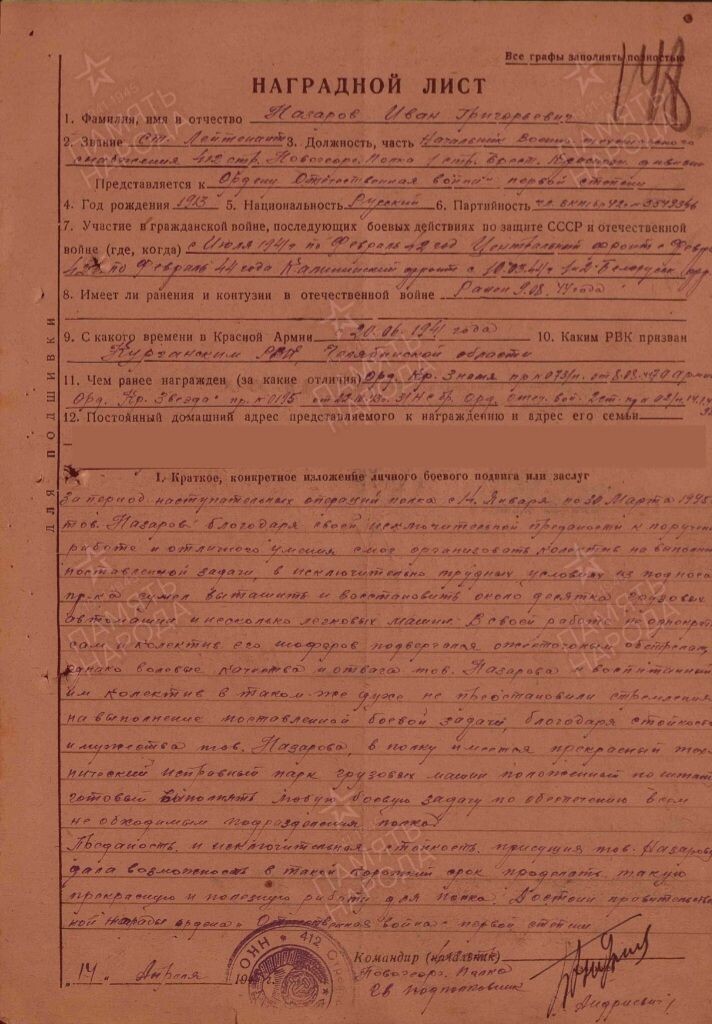 Все графы заполнять полностью
148
НАГРАДНОЙ ЛИСТ
1. Фамилия, имя и отчество Назаров Иван Григорьевич
2. Звание Ст. Лейтенант 3. Должность, часть Начальник Военно-технического
снабжения 412 стр. Новогеорг. Полка 1 стр. Брест. Краснозн. дивизии
Представляется к Ордену Отечественная война первой степени
4. Год рождения 1913 5. Национальность Русский 6. Партийность чл. ВКП(б)
7. Участие в гражданской войне, последующих боевых действиях по защите СССР и отечественной
войне (где, когда) с Июля 1941 г по Февраль 42 год Центральный фронт с Февр
42 по Февраль 44 года Калининский фронт с
8. Имеет ли ранения и контузии в отечественной войне Ранен 9.08.44 года
9. С какого времени в Красной Армии 20.06.1941 года 10. Каким РВК призван
Курганским РВК, Челябинской области
11. Чем ранее награжден (за какие отличия) Орд. Кр. Знамя
Орд. Кр. Звезда
12. Постоянный домашний адрес представляемого к награждению и адрес его семьи
ДЛЯ ПОДШИВКИ
1. Краткое, конкретное изложение личного боевого подвига или заслуг
За период наступательных операций полка с 14 Января по 30 Марта 1945
тов. Назаров благодаря своей исключительной преданости к поручен
работе и отличного умения смог организовать колектив на выполне
поставленной задачи, в исключительно трудных условиях из под носа
пр-ка сумел вытащить и восстановить около десятка грузовых
автомашин и несколько легковых машин. В своей работе неоднократ
сам и колектив его шоферов подвергался ожесточоным обстрелам,
однако волевые качества и отвага тов. Назарова и воспитанный
им колектив в таком-же духе не преостановили стремления
на выполнение поставленной боевой задачи, благодаря стойкости
и мужества тов. Назарова, в полку имеется прекрасный тех-
нический исправный парк грузовых машин положенный по штату
готовый выполнять любую боевую задачу по обеспечению всем
необходимым подразделения полка.
Преданость и исключительная стойкость присущия тов. Назарову
дала возможность в такой короткий срок проделать такую
прекрасную и полезную работу для полка. Достоин правительствен
ной награды ордена „Отечественная война" первой степени
14 Апреля 194 г.
Командир (начальник)
Новогеорг. Полка
Гв подполковник
Андриевич
412
ПАМЯТЬ
НАРОДА